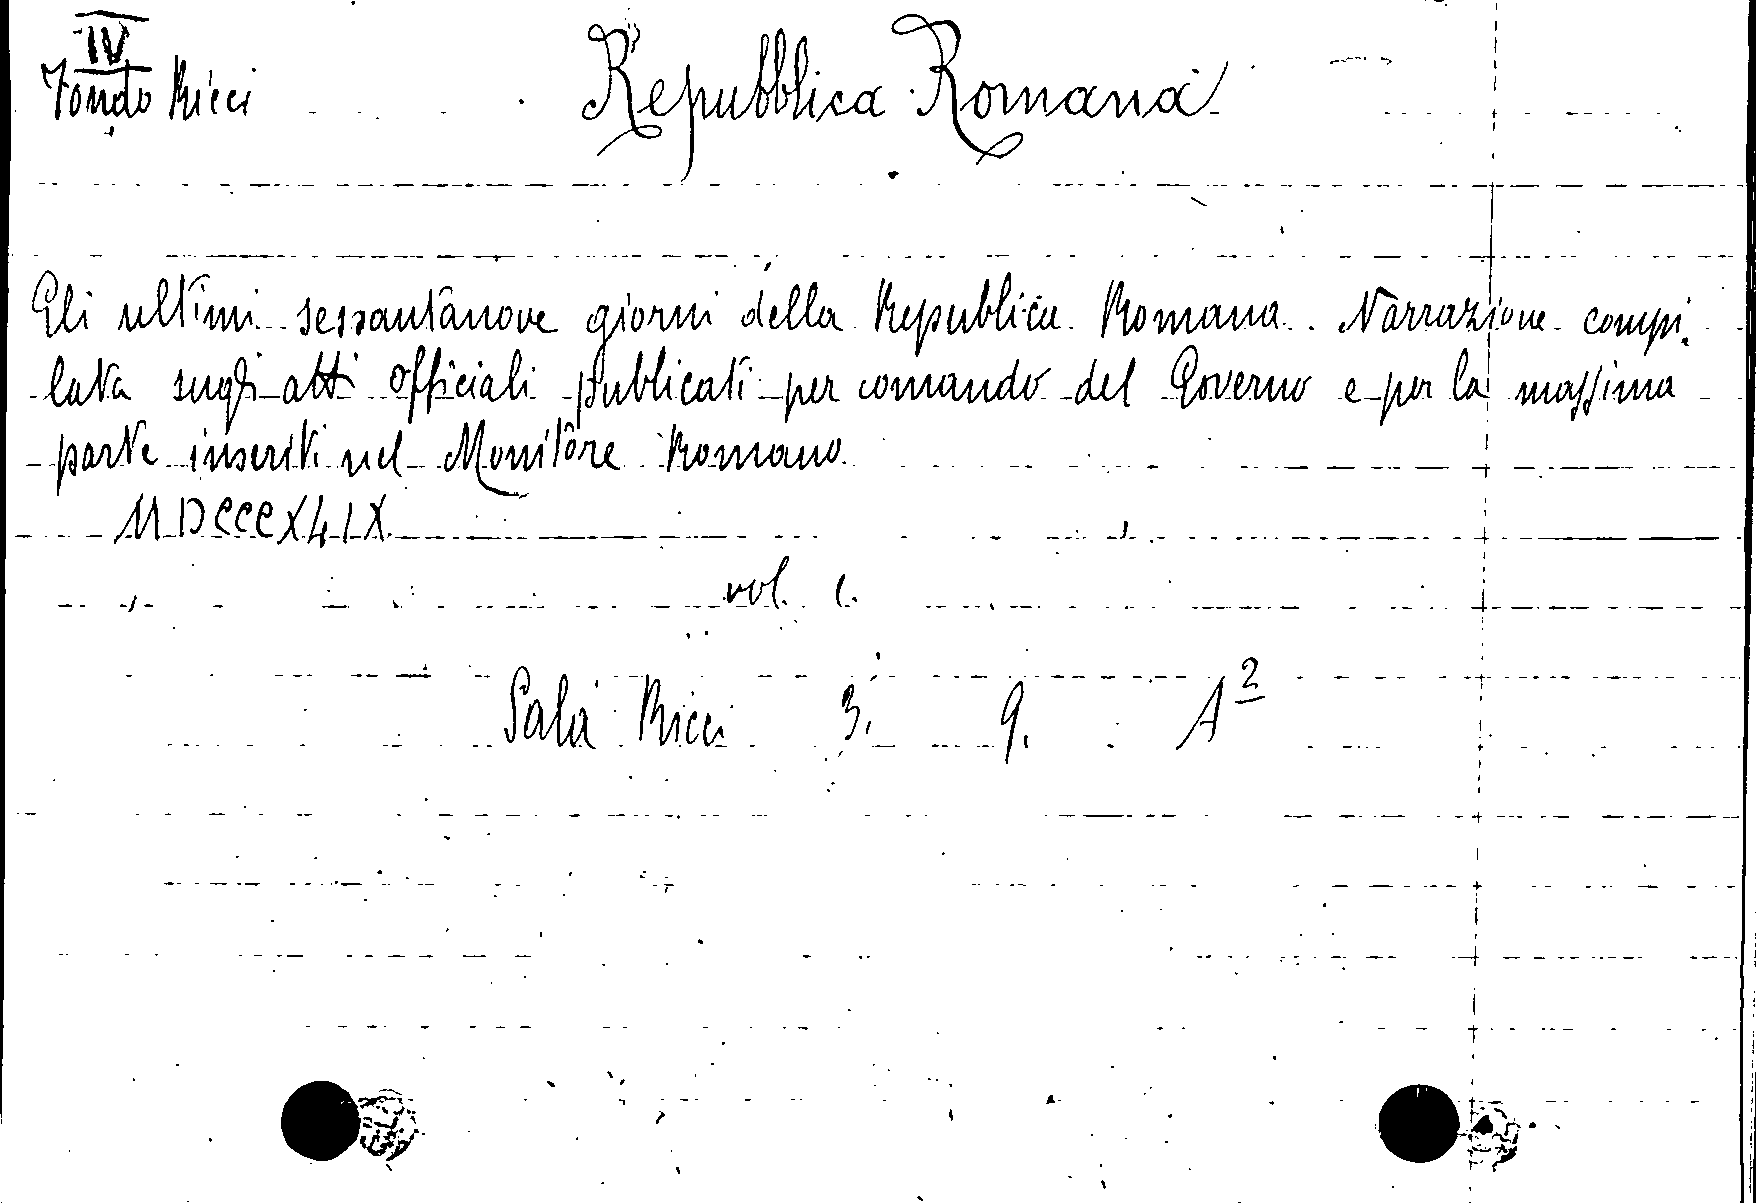 IV
Fondo Ricci
Repubblica Romana
Gli ultimi sessantanove giorni della Republica Romana. Narrazione compi.
lata sugli atti officiali publicati per comando del Governo e per la massima
parte inseriti nel Monitore Romano
MDCCCXLIX
vol. 1.
Sala Ricci 3. 9. A²